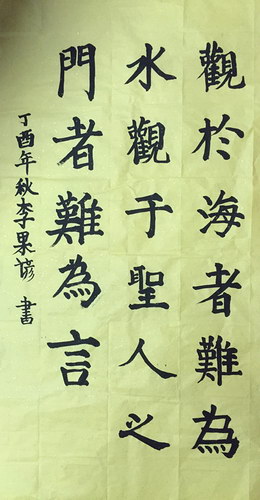 觀於海者難為
水觀于聖人之
門者難為言
丁酉年秋李果諺書